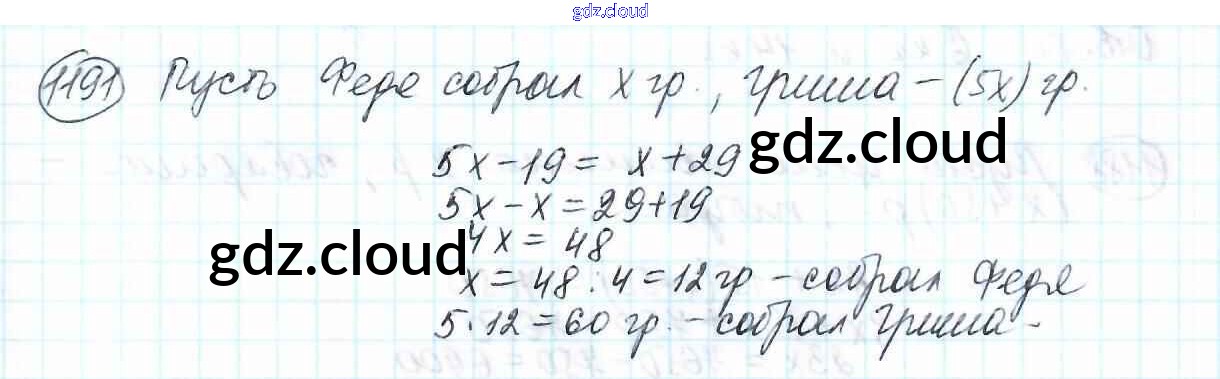 gdz.cloud
1191 Пусть Федя собрал x гр., Гриша – (5x) гр.
5x – 19 = x + 29 gdz.cloud
5x – x = 29 + 19
gdz.cloud 4x = 48
x = 48 : 4 = 12 гр – собрал Федя
5 · 12 = 60 гр. – собрал Гриша.